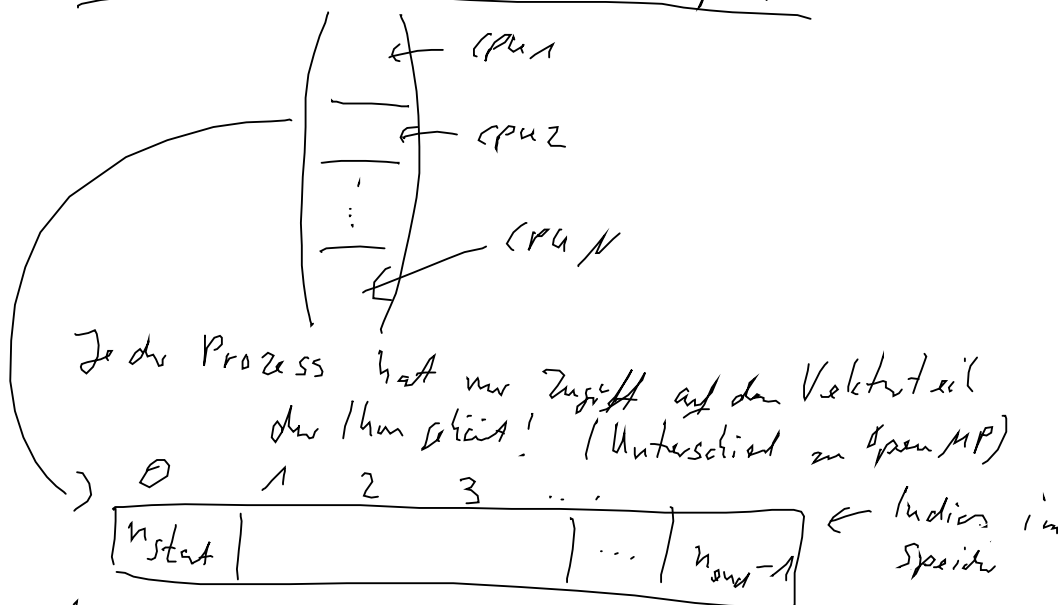 cpu 1
cpu 2
⋮
cpu N
Jeder Prozess hat nur Zugriff auf den Vektorteil
der Ihm gehört! (Unterschied zu OpenMP)
0 1 2 3 ....
n_start ... n_end-1 ← Indices im
Speicher